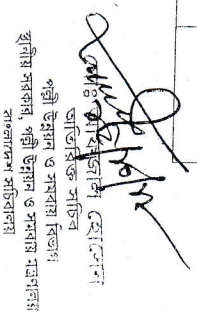 হোসেন
অতিরিক্ত সচিব
পল্লী উন্নয়ন ও সমবায় বিভাগ
স্থানীয় সরকার, পল্লী উন্নয়ন ও সমবায় মন্ত্রণালয়
বাংলাদেশ সচিবালয়